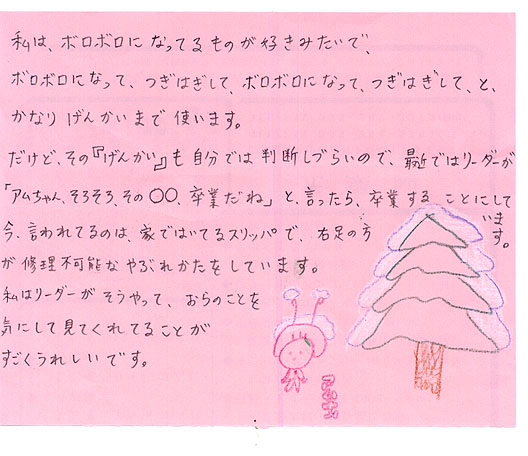 私は、ボロボロになってるものが好きみたいで、
ボロボロになって、つぎはぎして、ボロボロになって、つぎはぎして、と、
かなりげんかいまで使います。
だけど、その『げんかい』も自分では判断しづらいので、最近ではリーダーが
「アムちゃん、そろそろ、その〇〇、卒業だね」と、言ったら、卒業することにしています。
今、言われてるのは、家ではいてるスリッパで、右足の方
が修理不可能なやぶれかたをしています。
私はリーダーがそうやって、おらのことを
気にして見てくれてることが
すごくうれしいです。